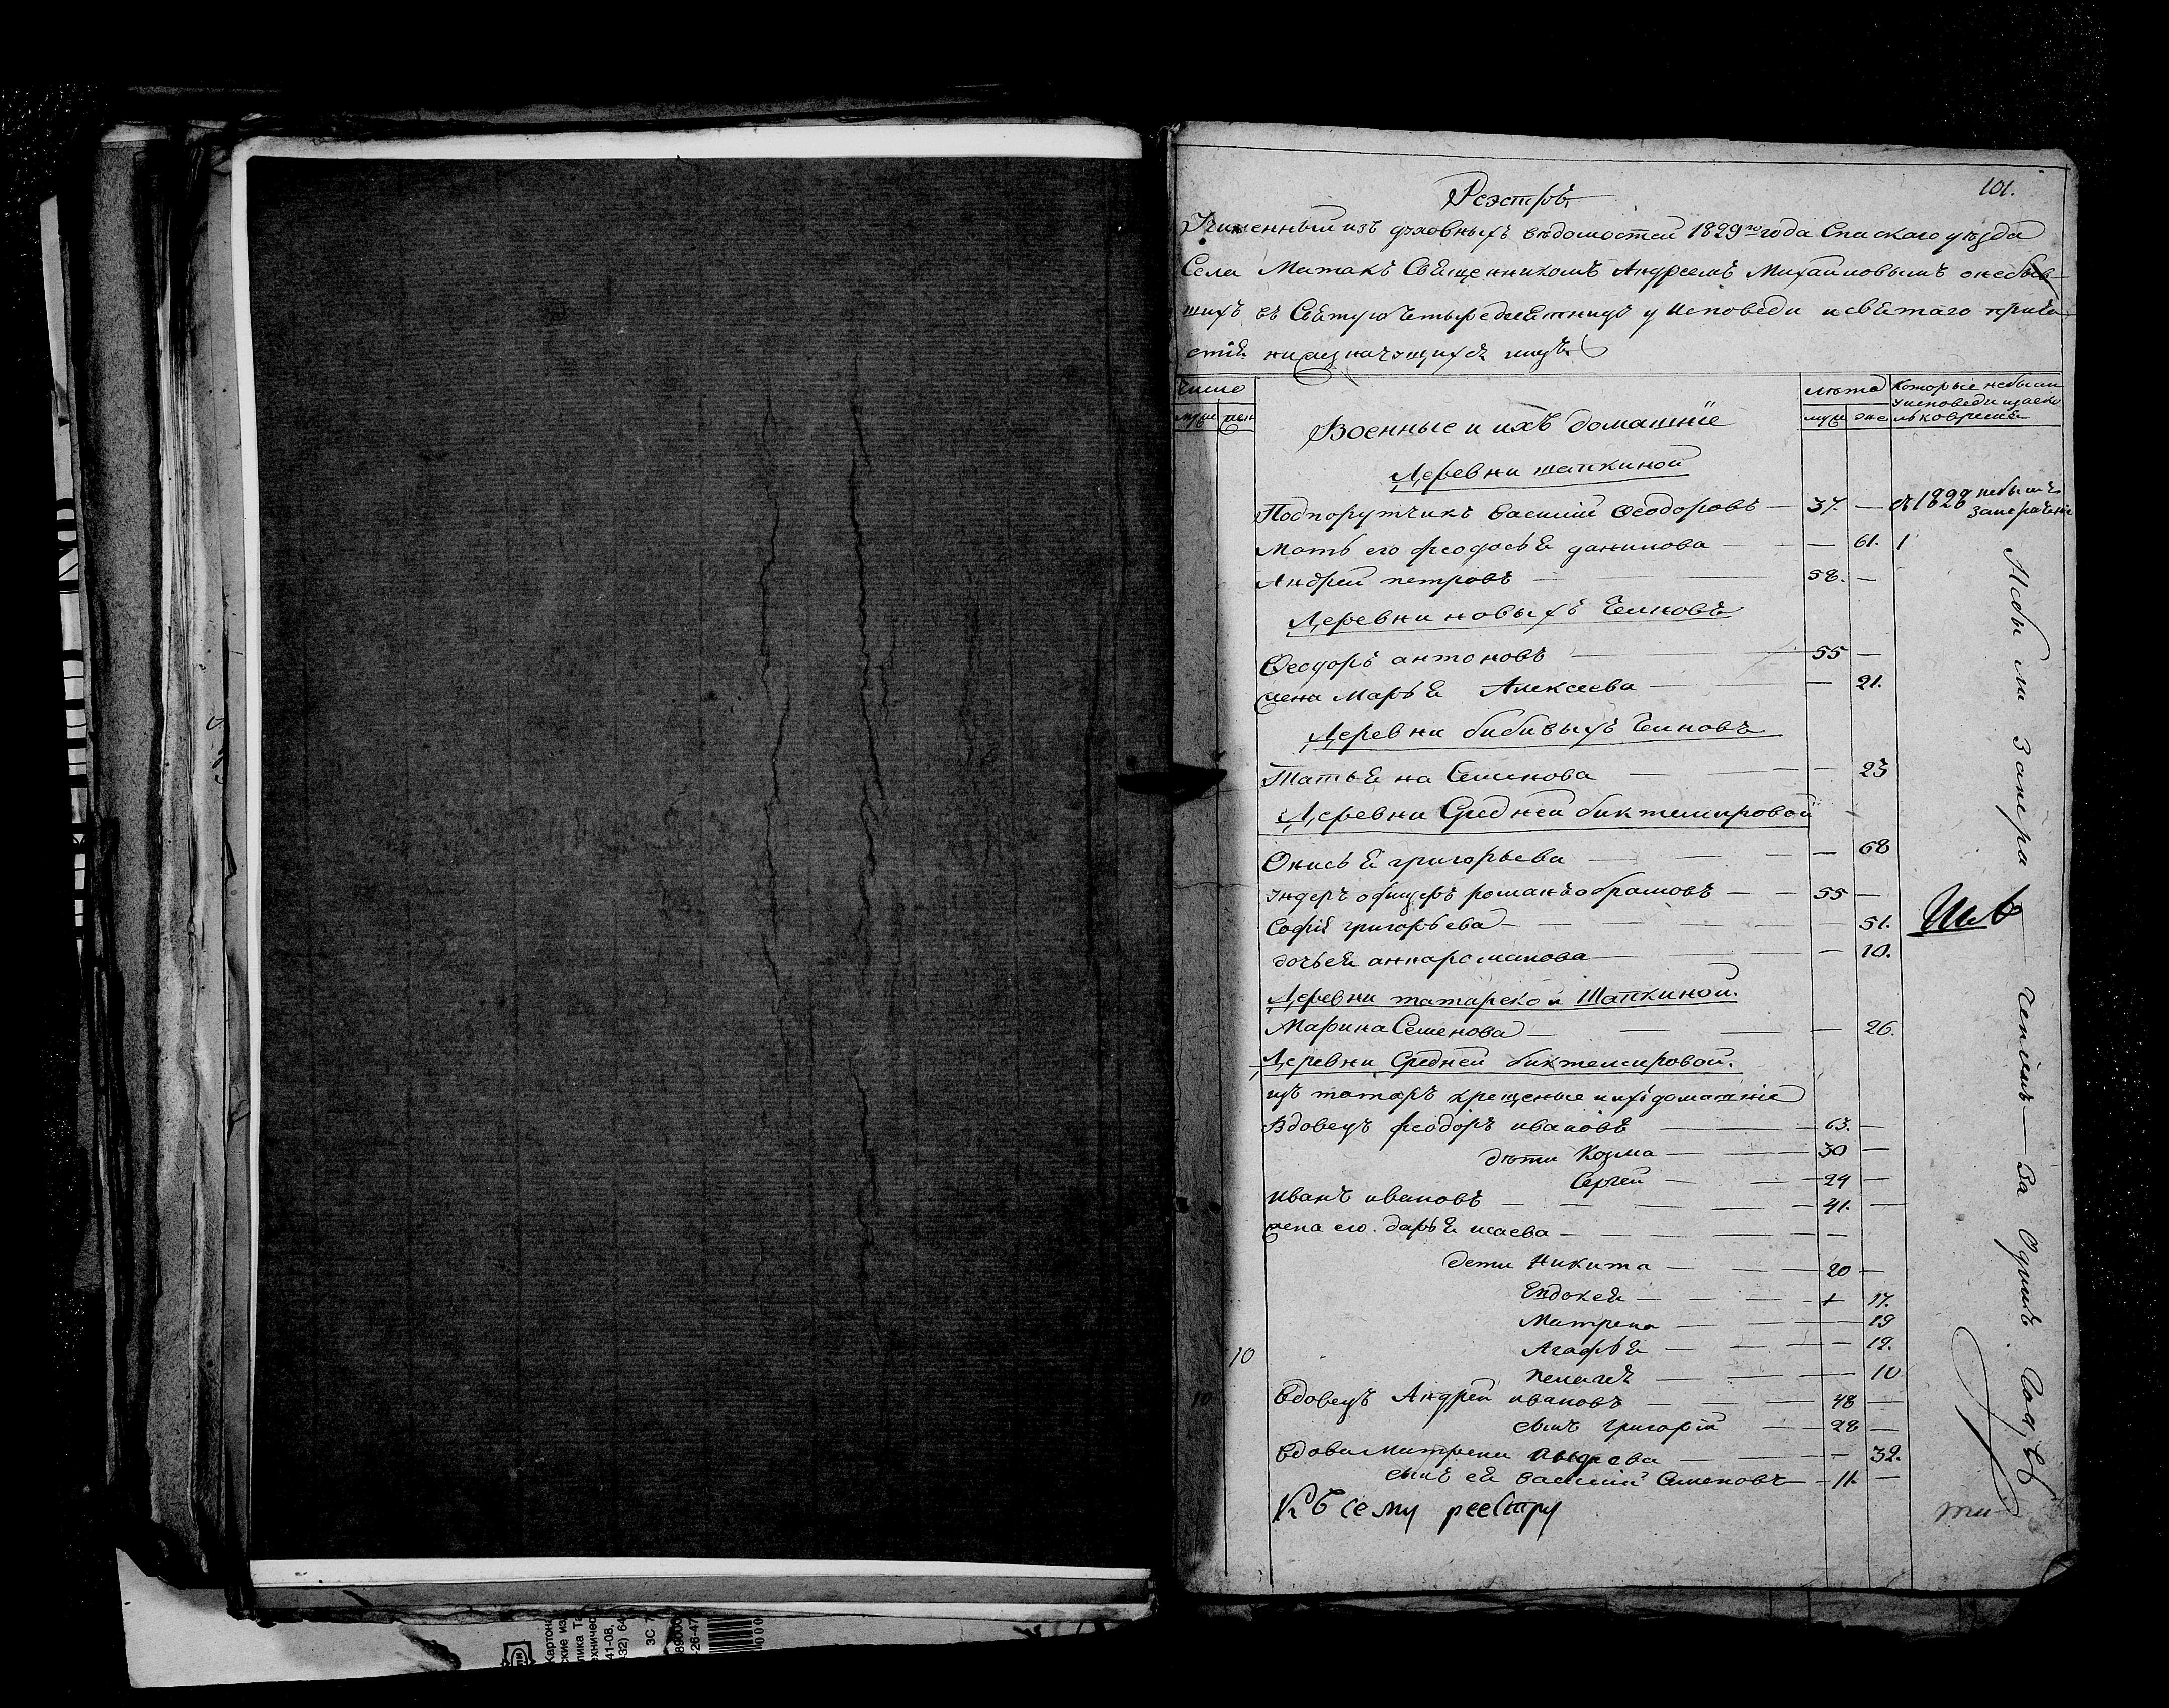 101.
Реэстръ
Учиненный изъ духовныхъ вѣдомостей 1829го года Спаскаго уѣзда
Села Матакъ Священникомъ Андреемъ Михайловымъ о небыв-
шихъ въ Святую Четыредесятницу у Исповеди и святаго прича-
стія лицъ
Число
муж жен
лѣта
муж же
Которые небыли
у исповеди и
Военные и ихъ домашніе
Деревни шапкиной
Подпорутчикъ Василий Феодоровъ — 37. — 1828 небылъ
Мать его феодосья данилова — — 61. 1
Андрей петровъ — 58. —
Деревни новыхъ Челновъ
Феодоръ антоновъ — 55 —
жена Марья Алексеева — — 21.
Деревни бибивыхъ Челновъ
Татьяна Семенова — — 23
Деревни Средней биктемировой
Онисья григорьева — — 68
ундеръ офицеръ романъ обрамовъ — 55 —
Софія григорьева — — 51.
дочь ея анна романова — — 10.
Деревни татарской Шапкиной.
Марина Семенова — — 26.
Деревни Средней биктемировой.
изъ татаръ крещеные и ихъ домашніе
Вдовецъ феодоръ ивановъ — 63. —
дѣти Козма — 30 —
Сергей — 29 —
иванъ ивановъ — 41. —
жена его дарья исаева — —
дети Никита — 20 —
Евдокея — 17.
Матрена — — 19
Агафья — — 12.
10
пелагея — — 10
10
Вдовецъ Андрей ивановъ — 48 —
сынъ григорій — 28 —
Вдова Матрена андреева — — 32.
сынъ ея василий Семеновъ — 11. —
Къ сему реестру
Небыли за нера-
чениемъ — За Однимъ